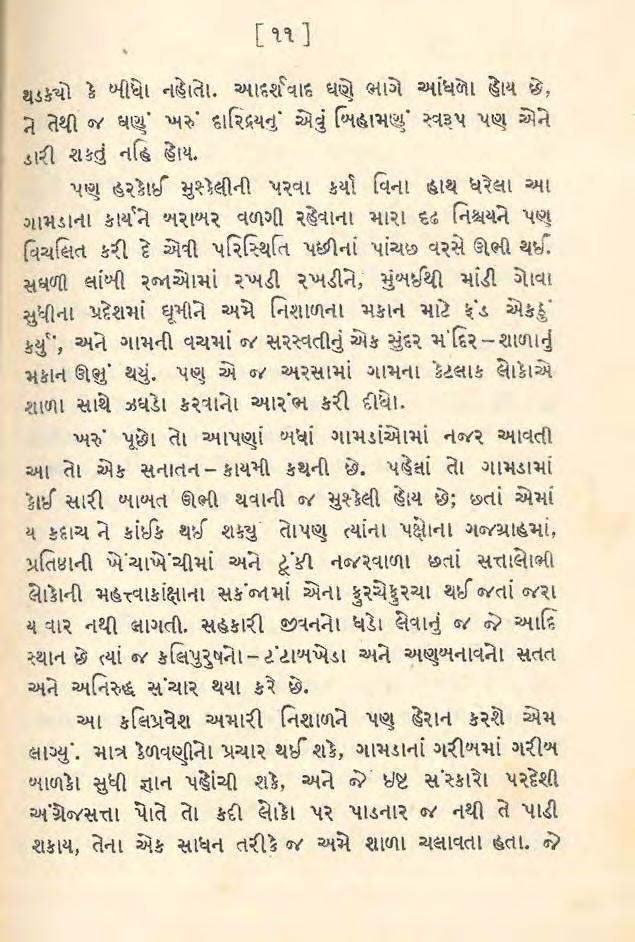 [ ૧૧ ]
થડક્યો કે બીધો નહોતો. આદર્શવાદ ઘણે ભાગે આંધળો હોય છે,
ને તેથી જ ઘણું ખરું દારિદ્રયનું એવું બિહામણું સ્વરૂપ પણ એને
ડારી શકતું નહિ હોય.
પણ હરકોઈ મુશ્કેલીની પરવા કર્યા વિના હાથ ધરેલા આ
ગામડાના કાર્યને બરાબર વળગી રહેવાના મારા દઢ નિશ્ચયને પણ
વિચલિત કરી દે એવી પરિસ્થિતિ પછીનાં પાંચછ વરસે ઊભી થઈ.
સઘળી લાંબી રજાઓમાં રખડી રખડીને, મુંબઈથી માંડી ગોવા
સુધીના પ્રદેશમાં ઘૂમીને અમે નિશાળના મકાન માટે ફંડ એકઠું
કર્યું, અને ગામની વચમાં જ સરસ્વતીનું એક સુંદર મંદિર–શાળાનું
મકાન ઊભું થયું. પણ એ જ અરસામાં ગામના કેટલાક લોકોએ
શાળા સાથે ઝઘડો કરવાનો આરંભ કરી દીધો.
ખરું પૂછો તો આપણાં બધાં ગામડાંઓમાં નજર આવતી
આ તો એક સનાતન–કાયમી કથની છે. પહેલાં તો ગામડામાં
કોઈ સારી બાબત ઊભી થવાની જ મુશ્કેલી હોય છે; છતાં એમાં
ય કદાચ ને કાંઈક થઈ શક્યું તોપણ ત્યાંના પક્ષોના ગજગ્રાહમાં,
પ્રતિષ્ઠાની ખેંચાખેંચીમાં અને ટૂંકી નજરવાળા છતાં સત્તાલોભી
લોકોની મહત્ત્વાકાંક્ષાના સકંજામાં એના ફુરચેફુરચા થઈ જતાં જરા
ય વાર નથી લાગતી. સહકારી જીવનનો ધડો લેવાનું જ જે આદિ
સ્થાન છે ત્યાં જ કલિપુરુષનો–ટંટાબખેડા અને અણબનાવનો સતત
અને અનિરુદ્ધ સંચાર થયા કરે છે.
આ કલિપ્રવેશ અમારી નિશાળને પણ હેરાન કરશે એમ
લાગ્યું. માત્ર કેળવણીનો પ્રચાર થઈ શકે, ગામડાનાં ગરીબમાં ગરીબ
બાળકો સુધી જ્ઞાન પહોંચી શકે, અને જે ઇષ્ટ સંસ્કારો પરદેશી
અંગ્રેજસત્તા પોતે તો કદી લોકો પર પાડનાર જ નથી તે પાડી
શકાય, તેના એક સાધન તરીકે જ અમે શાળા ચલાવતા હતા. જે